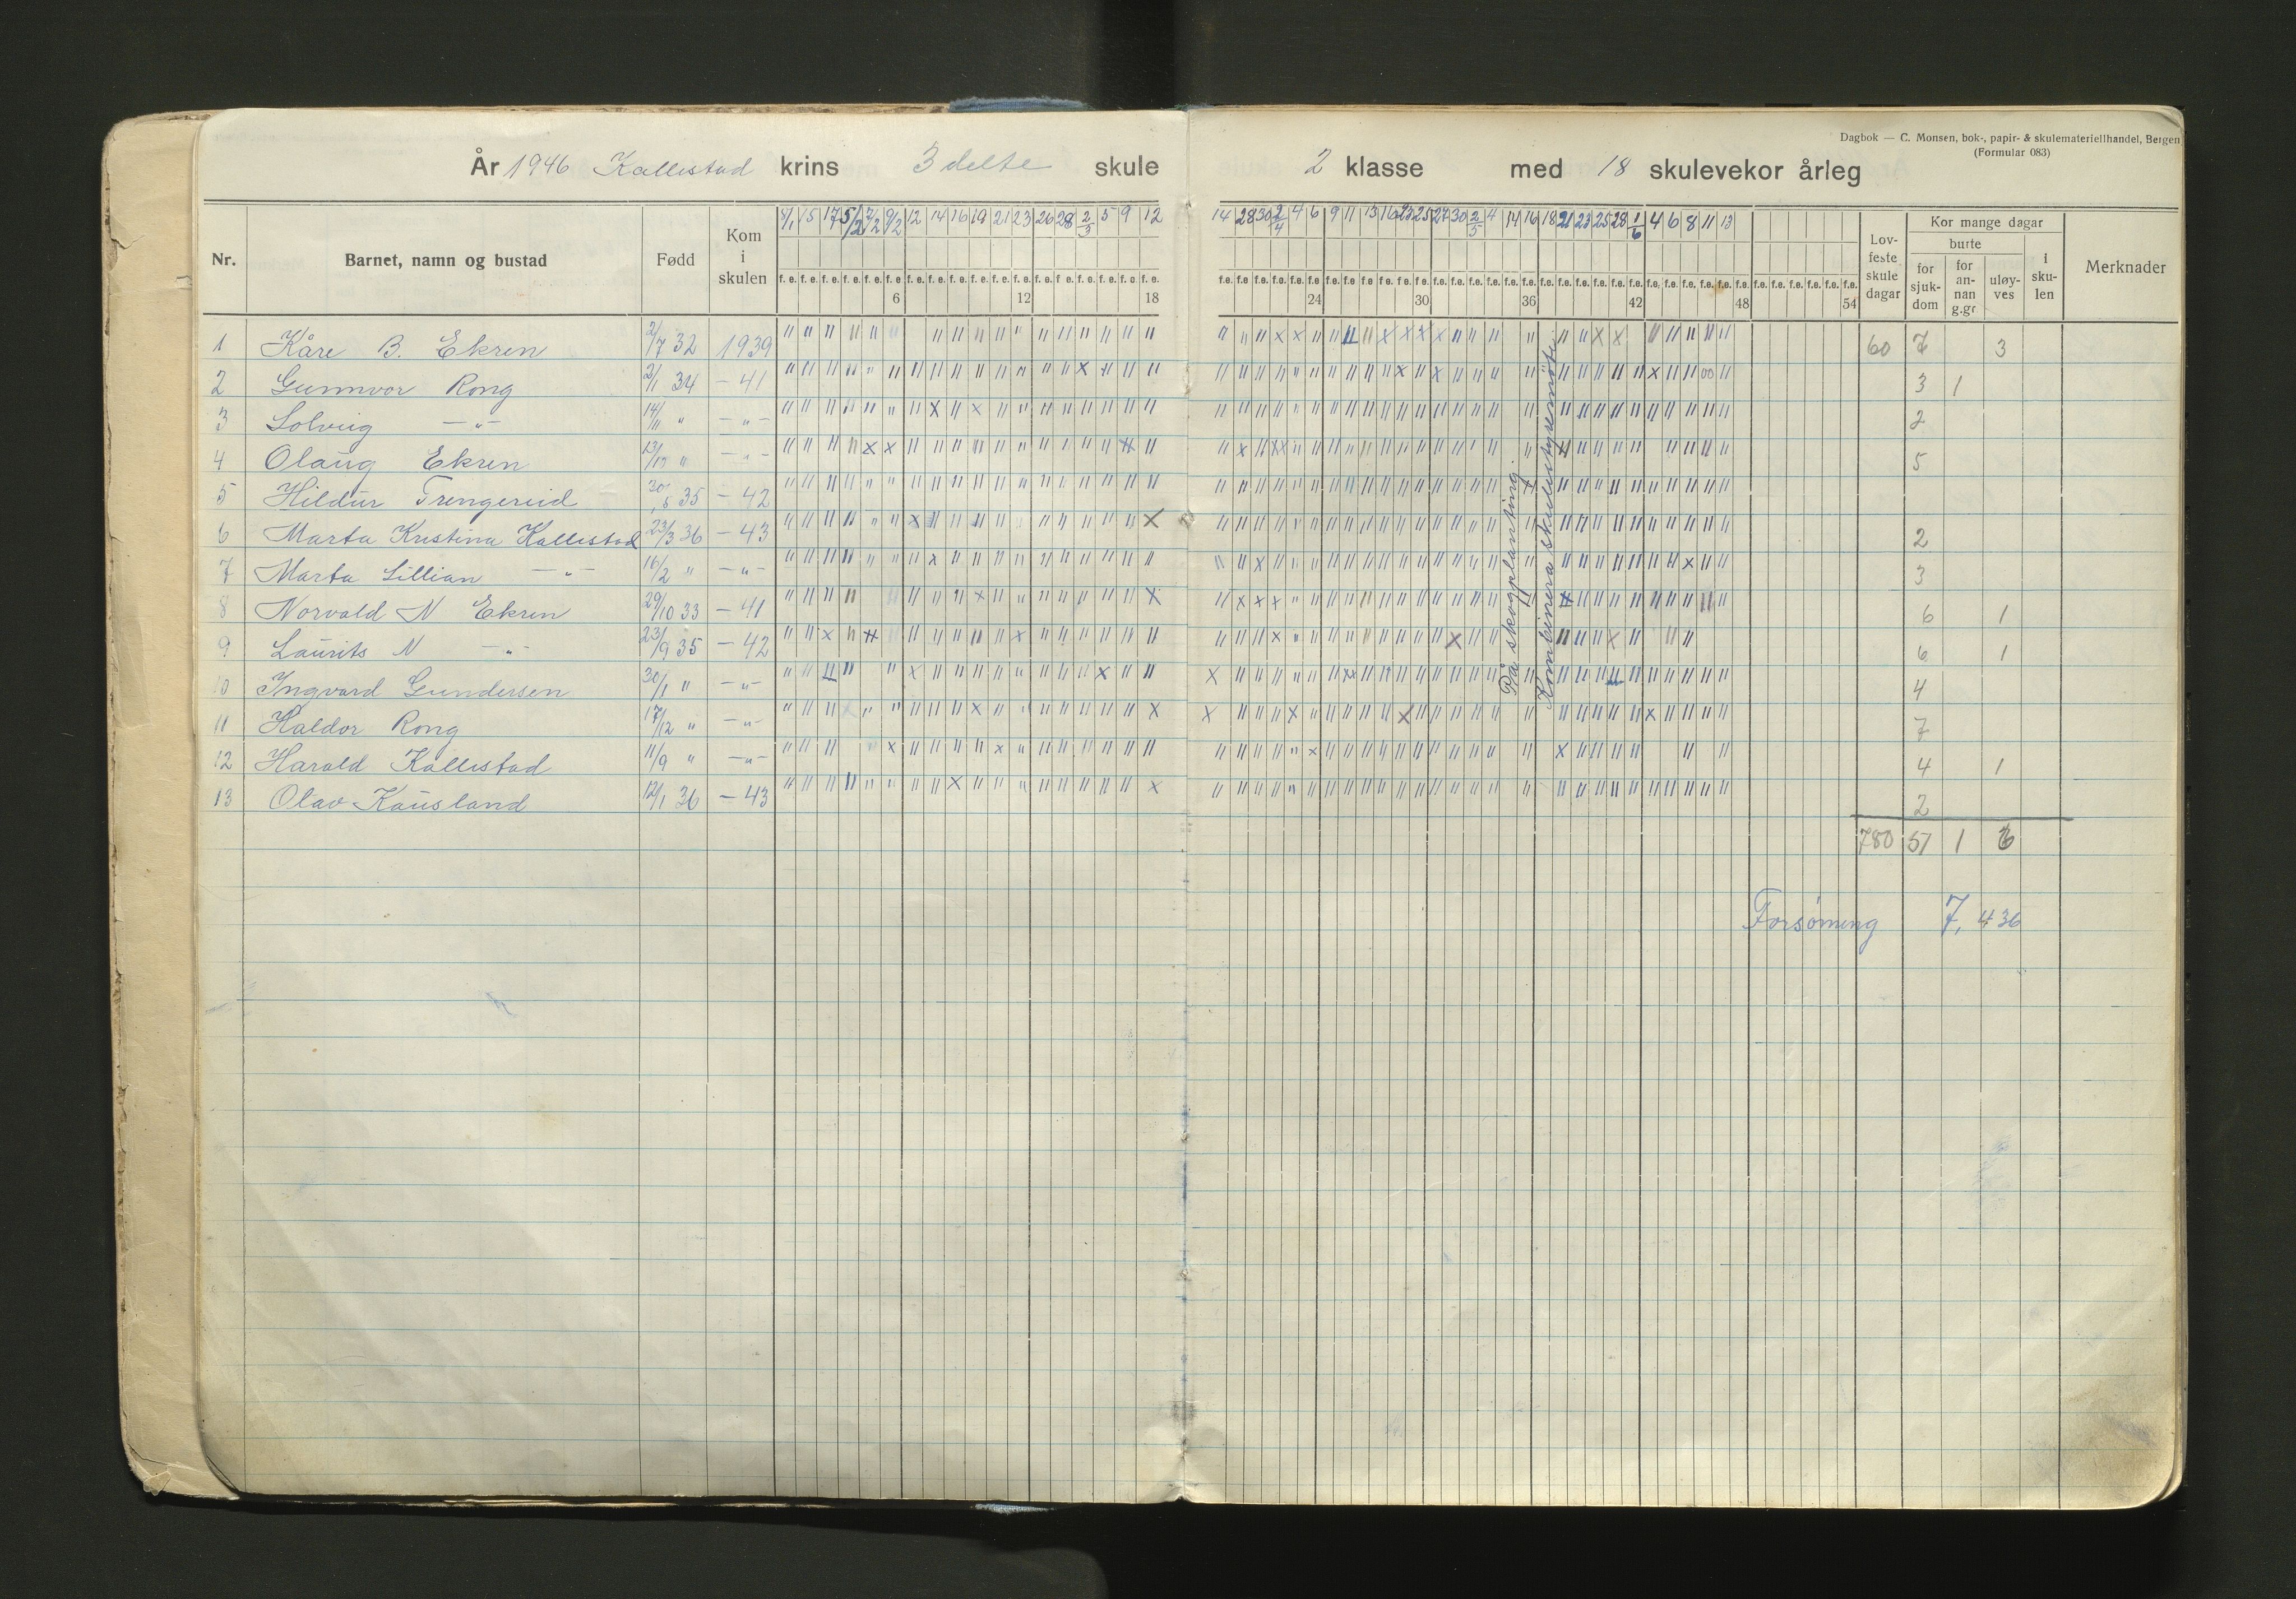 Dagbok — C. Monsen, bok-, papir- & skulemateriellhandel, Bergen
(Formular 083)
År 1946 Kallestad krins 3 delte skule 2 klasse med 18 skulevekor årleg
Nr. Barnet, namn og bustad Født Kom i skulen
8/1 15 17 5/2 7/2 9/2 12 14 16 19 21 23 26 28 2/3 5 9 12
14 28 30 2/4 4 6 9 11 13 16 23 25 27 30 2/5 4 14 16 18 21 23 25 28 1/6 4 6 8 11 13
6 12 18 24 30 36 42 48 54
Lovfeste skule dagar
Kor mange dagar
burte
for sjukdom for annan g.gr uløyves i skulen
Merknader
1 Kåre B. Ekren 2/7 32 1939 60 7 3
2 Gunnvor Rong 2/1 34 — 41 3 1
3 Solveig —"— 14/11 " —"— 2
4 Olaug Ekren —"— 5
5 Hildur Trengereid 35 — 42
6 Marta Kristina Kallestad 23/3 36 — 43 2
7 Marta Lillian —"— 16/2 " —"— 3
8 Norvald N Ekren 29/10 33 — 41 6 1
9 Laurits N —"— 23/9 35 — 42 6 1
10 Ingvard Gundersen 30/1 " —"— 4
11 Haldor Rong 17/12 " —"— 7
12 Harald Kallestad 11/9 " —"— 4 1
13 Olav Kausland 12/1 36 — 43 2
På skogplanting.
Kombinera skulestyremöte.
780 51 1 6
Forsøming 7,436